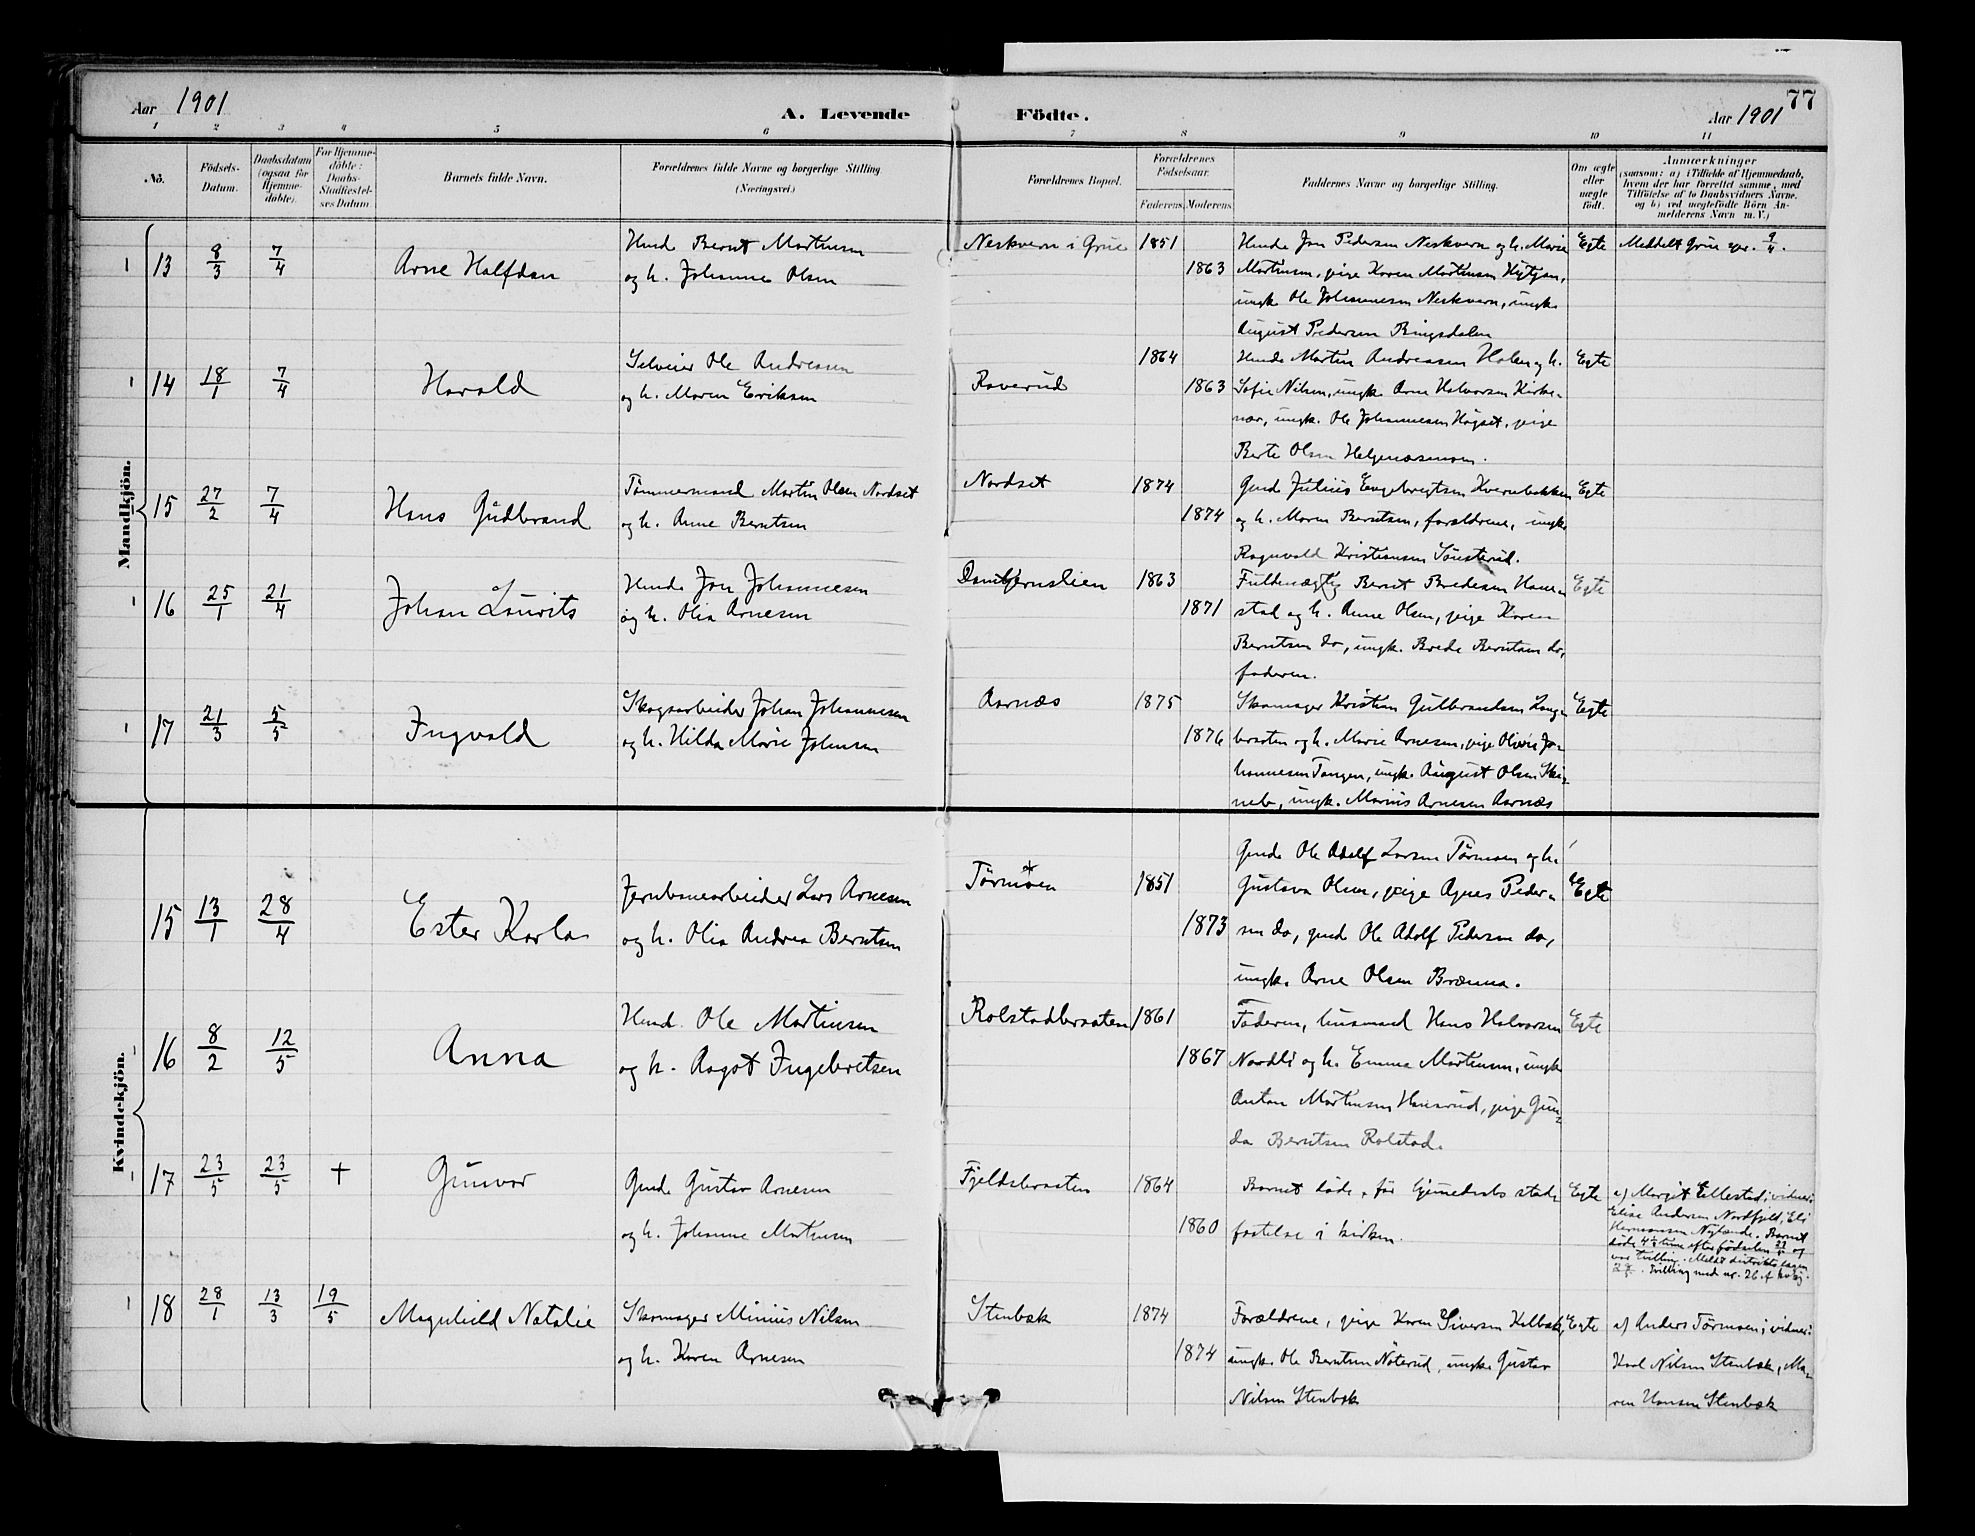 77
Aar 1901
A. Levende
Födte.
Aar 1901
1 2 3 4 5 6 7 8 9 10 11
No.
Födsels-
Datum.
Daabsdatum
(ogsaa for
Hjemme-
döbte).
For Hjemme-
döbte:
Daabs-
Stadfæstel-
ses Datum
Barnets fulde Navn.
Forældrenes fulde Navne og borgerlige Stilling
(Næringsvei.)
Forældrenes Bopæl.
Forældrenes
Födselsaar.
Faderens. Moderens.
Faddernes Navne og borgerlige Stilling.
Om ægte
eller
uægte
födt.
Anmærkninger
(saasom: a) i Tilfælde af Hjemmedaab,
hvem der har forrettet samme, med
Tilföielse af to Daabsvidners Navne,
og b) ved uægtefödte Börn An-
melderens Navn m. V.)
Mandkjön.
13 8/3 7/4 Arne Halfdan
Husmd Bernt Martinsen
og h. Johanne Olsen
Neskvern i Grue 1851
1863
Husmd Jon Pedersen Neskvern og h. Marie
Martinsen, pige Karen Martinsen
ungk. Ole Johannesen Neskvern, ungk.
August Pedersen Bingsdalen
Egte
Meddelt Grue spr. 9/4.
14 18/1 7/4 Harald
Selveier Ole Andreasen
og h. Maren Eriksen
Raverud
1864
1863
Husmd Martin Andreasen Holen og h.
Sofie Nilsen, ungk. Arne Halvorsen Kirke-
nær, ungk. Ole Johannesen Högset, pige
Berte Olsen Helgenæsmoen.
Egte
15 27/2 7/4 Hans Gudbrand
Tömmermand Martin Olsen Nordset
og h. Anne Berntsen
Nordset
1874
1874
Gmd Julius Engebregtsen Kvernbakken
og h. Maren Berntsen, forældrene, ungk.
Ragnvald Kristiansen Sönsterud.
Egte
16 25/1 21/4 Johan Lauvits
Husmd Jon Johannesen
og h. Olia Arnesen
Dambjernslien
1863
1871
Fuldmægtig Bernt Bredesen Haner-
stad og h. Anne Olsen, pige Karen
Berntsen do, ungk. Brede Berntsen do,
faderen.
Egte
17 21/3 5/5 Ingvald
Skogsarbeider Johan Johannesen
og h. Hilda Marie Johnsen
Aarnæs
1875
1876
Skomager Kristian Gulbrandsen Lange-
braaten og h. Marie Arnesen, pige Olivie Jo-
hannesen Tangen, ungk. August Olsen
ungk. Marius Arnesen Aarnæs
Egte
Kvindekjön.
15 13/1 28/4 Ester Karla
Jernbanearbeider Lars Arnesen
og h. Olia Andrea Berntsen
Törmoen
1851
1873
Gmd Ole Adolf Larsen Törmoen og h.
Gustava Olsen, pige Agnes Peder-
sen do, gmd Ole Adolf Pedersen do,
ungk. Arne Olsen Brænna.
Egte
16 8/2 12/5 Anna
Husmd. Ole Martinsen
og h. Aagot Ingebretsen
Rolstadbraaten
1861
1867
Faderen, husmand Hans Halvorsen
Nordli og h. Emma Martinsen, ungk.
Anton Martinsen Hanserud, pige Gun-
da Berntsen Rolstad.
Egte
17 23/5 23/5 † Gunvor
Gmd Gustav Arnesen
og h. Johanne Martinsen
Fjeldsbraaten
1864
1860
Barnet döde, för hjemmedaabs stad-
fæstelse i kirken.
Egte
a) Margit Ellestad; vidner:
Elise Andersen Nordfjeld, Eli
Hermansen Nylænde. Barnet
döde 4½ time efter födselen 23/5 og
var tvilling. Meldt distriktslægen
Tvilling med nr. 26 af kvkj.
18 28/1 13/3 19/5 Magnhild Natalie
Skomager Minius Nilsen
og h. Karen Arnesen
Stenbæk
1874
1874
Forældrene, pige Karen Siversen Kolbæk,
ungk. Ole Berntsen Noterud, ungk. Gustav
Nilsen Stenbæk
Egte
a) Anders Törmoen; vidner:
Karl Nilsen Stenbæk, Ma-
ren Hansen Stenbæk